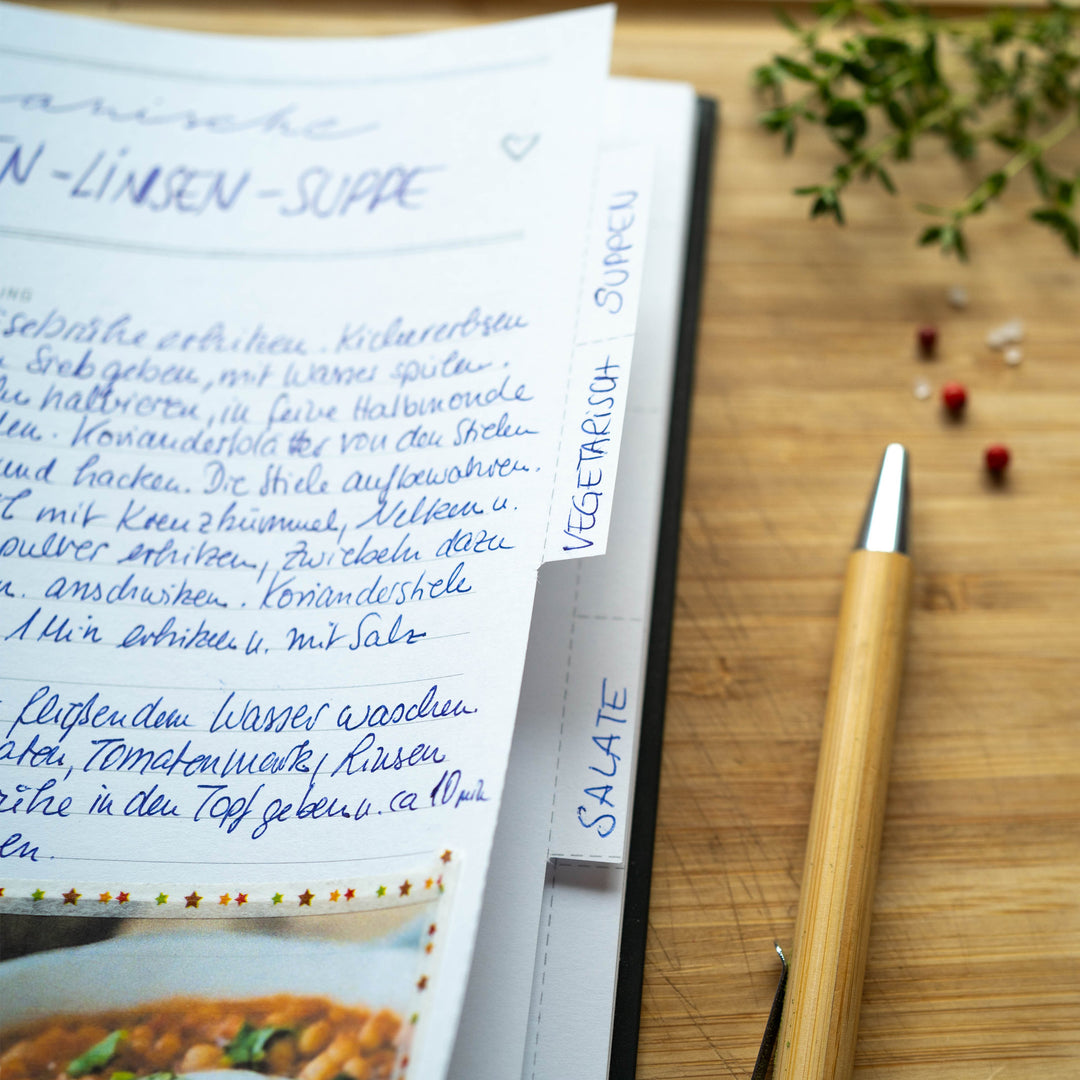 anische
N-LINSEN-SUPPE
UNG
selbrühe erhitzen. Kichererbsen
Sieb geben, mit Wasser spülen.
halbieren, in feine Halbmonde
den. Korianderblätter von den Stielen
und hacken. Die Stiele aufbewahren.
mit Kreuzkümmel, Nelken u.
pulver erhitzen, Zwiebeln dazu
n. anschwitzen. Korianderstiele
1 Min erhitzen u. mit Salz
fließendem Wasser waschen.
aten, Tomatenmark, Linsen
rühe in den Topf geben u. ca 10 min
en.
SUPPEN
VEGETARISCH
SALATE